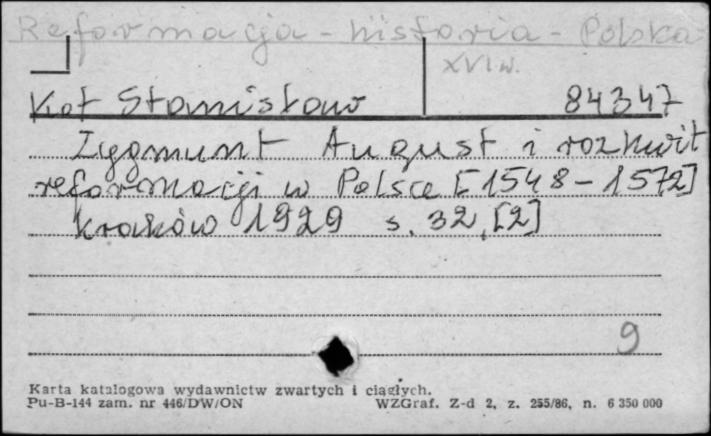 Reformacja - historia - Polska -
XVI w.
Kot Stanisław 84347
Zygmunt August i rozkwit
reformacji w Polsce [1548-1572]
Kraków 1929 s. 32, [2]
9
Karta katalogowa wydawnictw zwartych i ciągłych.
Pu-B-144 zam. nr 446/DW/ON WZGraf. Z-d 2, z. 255/86, n. 6 350 000